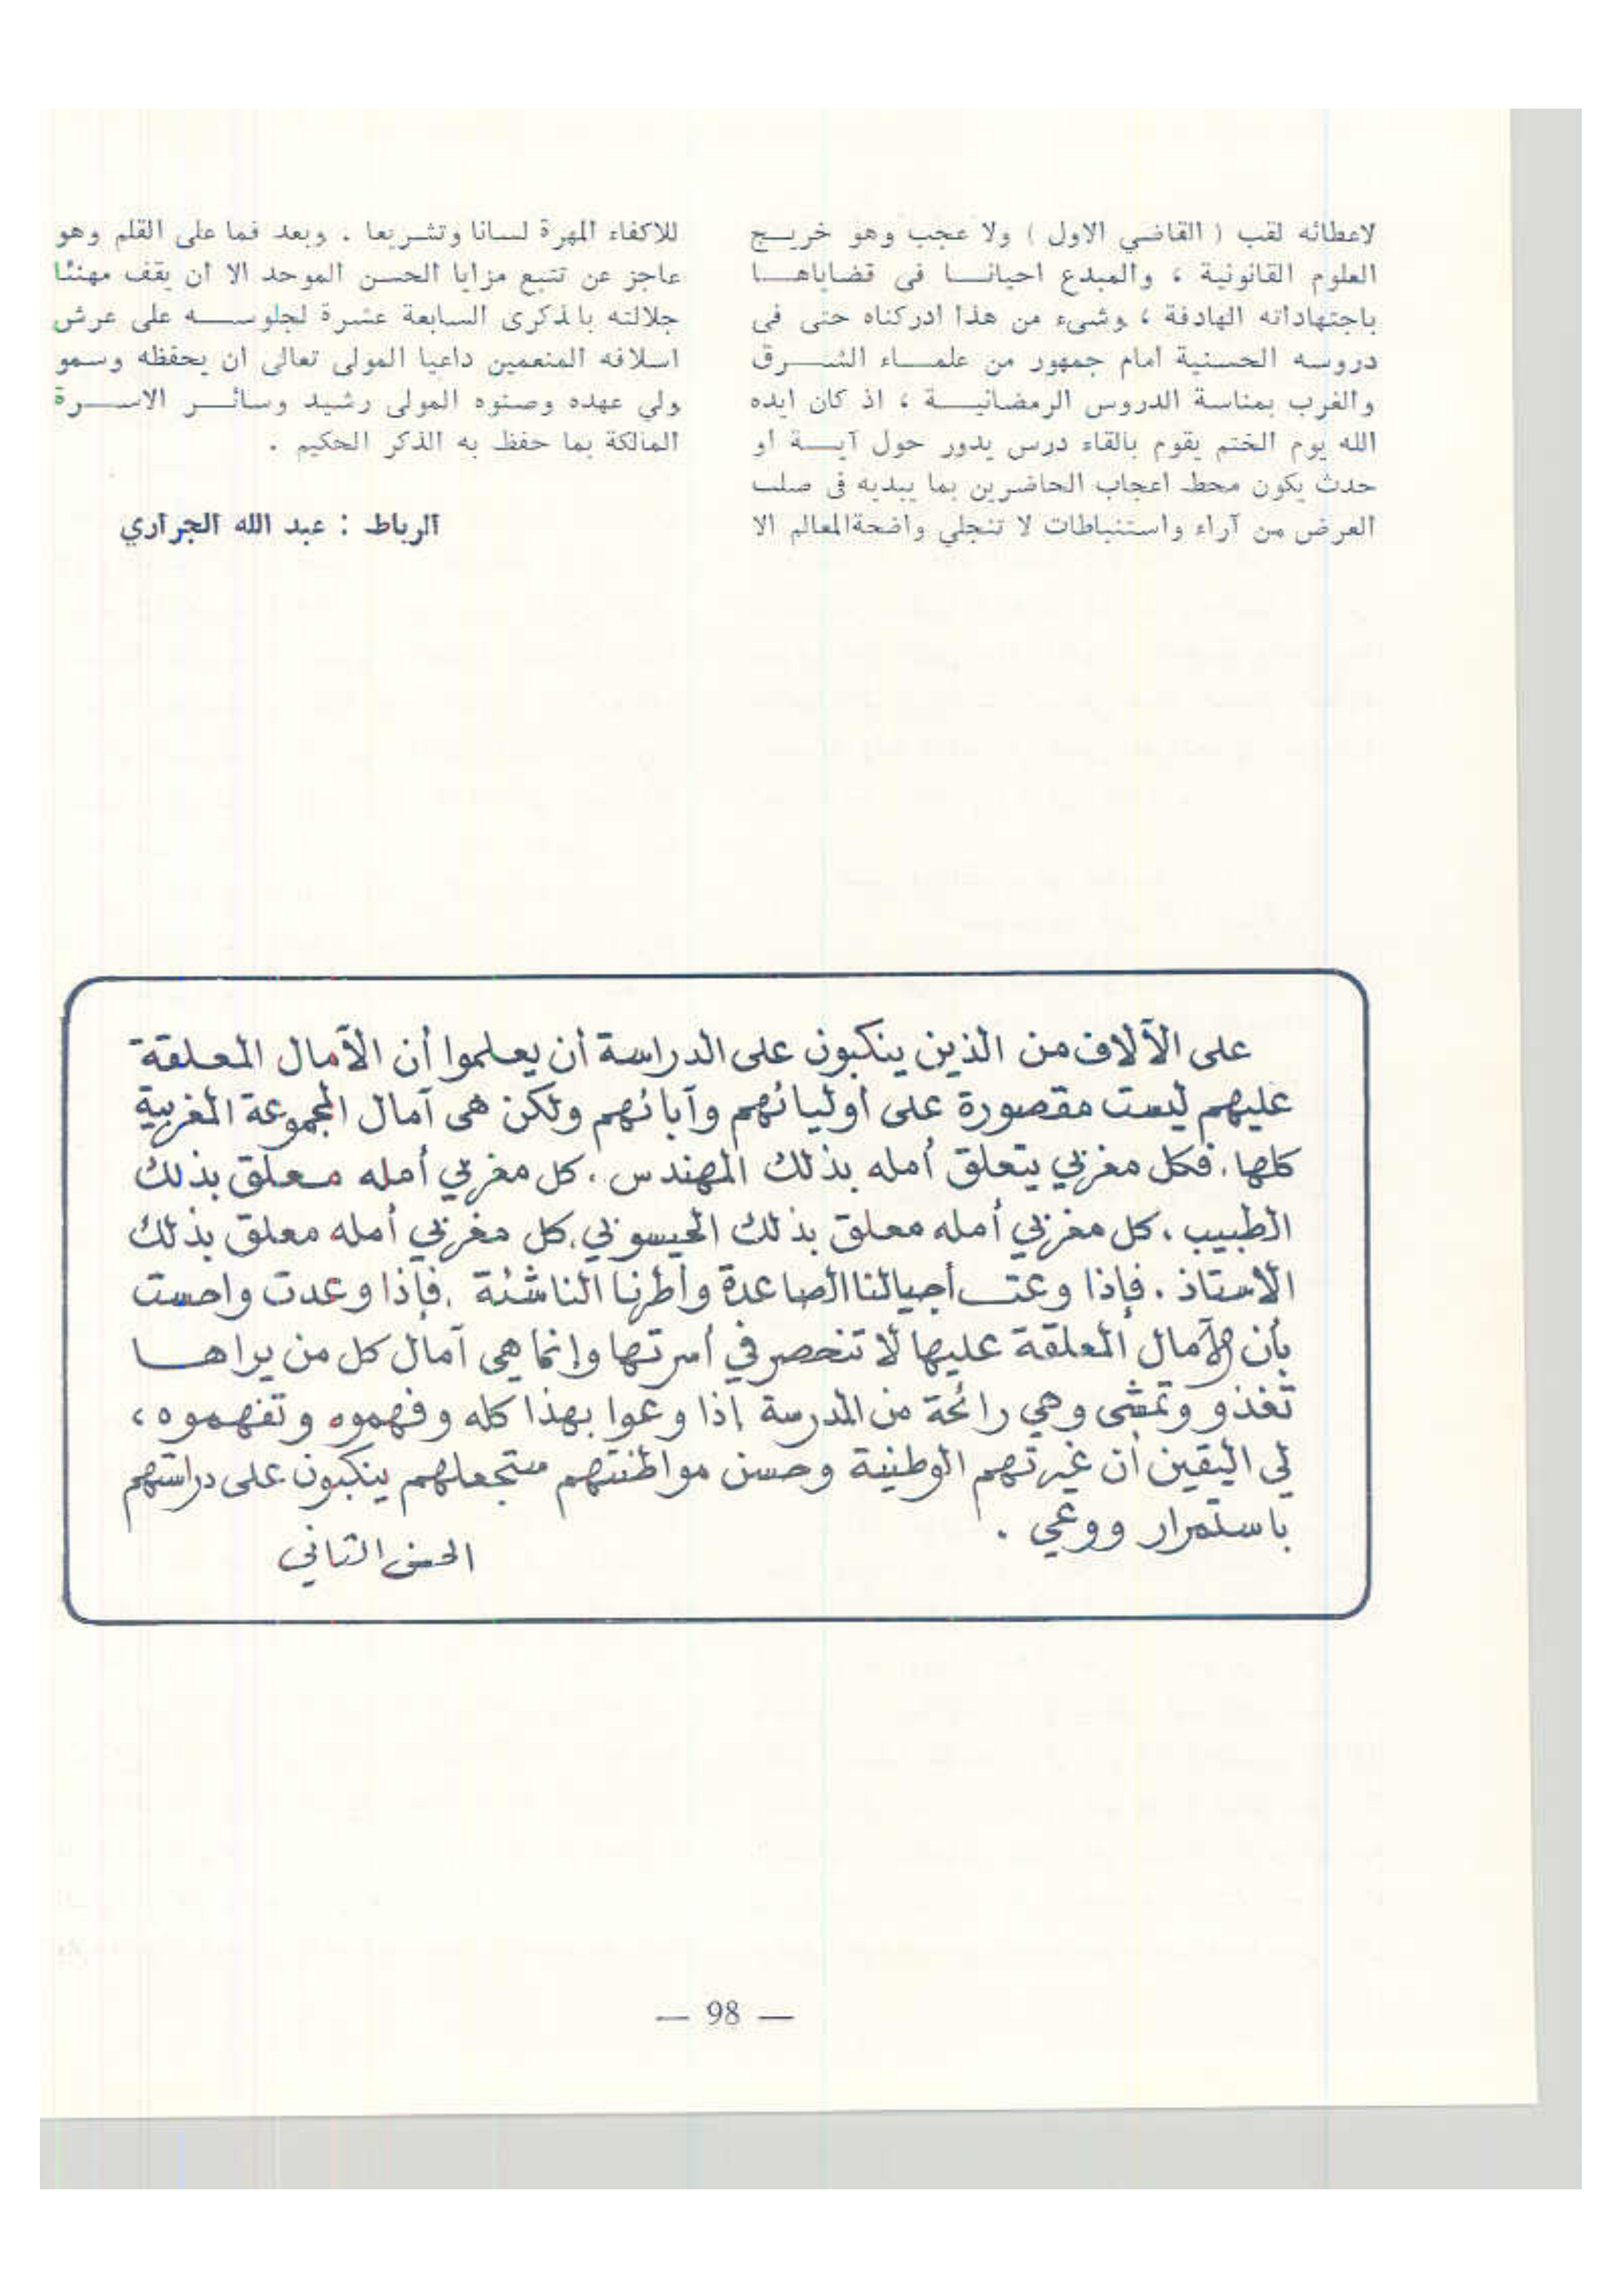 لاعطائه لقب ( القاضي الاول ) ولا عجب وهو خريــج
العلوم القانونية ، والمبدع احيانــا فى قضاياهــا
باجتهاداته الهادفة ، وشىء من هذا ادركناه حتى فى
دروسه الحسنية امام جمهور من علمــاء الشــرق
والغرب بمناسة الدروس الرمضانيــة ، اذ كان ايده
الله يوم الختم يقوم بالقاء درس يدور حول آيــة او
حدث يكون محط اعجاب الحاضرين بما يبديه فى صلب
العرض من آراء واستنباطات لا تنجلي واضحة المعالم الا
للاكفاء المهرة لسانا وتشـريعا . وبعد فما على القلم وهو
عاجز عن تتبع مزايا الحسن الموحد الا ان يقف مهنئا
جلالته بالذكرى السابعة عشرة لجلوســه على عرش
اسلافه المنعمين داعيا المولى تعالى ان يحفظه وسمو
ولي عهده وصنوه المولى رشيد وسائــر الاســرة
المالكة بما حفظ به الذكر الحكيم .
الرباط : عبد الله الجراري
على الآلاف من الذين ينكبون على الدراسة أن يعلموا أن الآمال المعلقة
عليهم ليست مقصورة على أوليائهم وآبائهم ولكن هى آمال المجموعة المغربية
كلها. فكل مغربي يتعلق أمله بذلك المهندس . كل مغربي أمله معلق بذلك
الطبيب ، كل مغربي أمله معلق بذلك الحيسوبي، كل مغربي أمله معلق بذلك
الاستاذ . فإذا وعتــ أجيالنا الصاعدة وأطرنا الناشئة . فإذا وعدت واحست
بأن الآمال المعلقة عليها لا تنحصر في أسرتها وإنما هي آمال كل من يراهــا
تغذو وتمشى وهي رائحة من المدرسة إذا وعوا بهذا كله وفهموه وتفهموه ،
لي اليقين أن غيرتهم الوطنية وحسن مواطنتهم ستجعلهم ينكبون على دراستهم
باستمرار ووعي .
الحسن الثاني
— 98 —